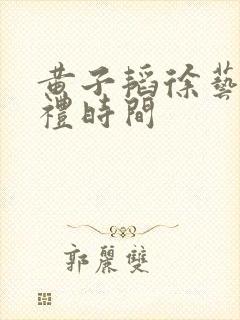 黄子韬徐藝
禮時間
郭麗雙